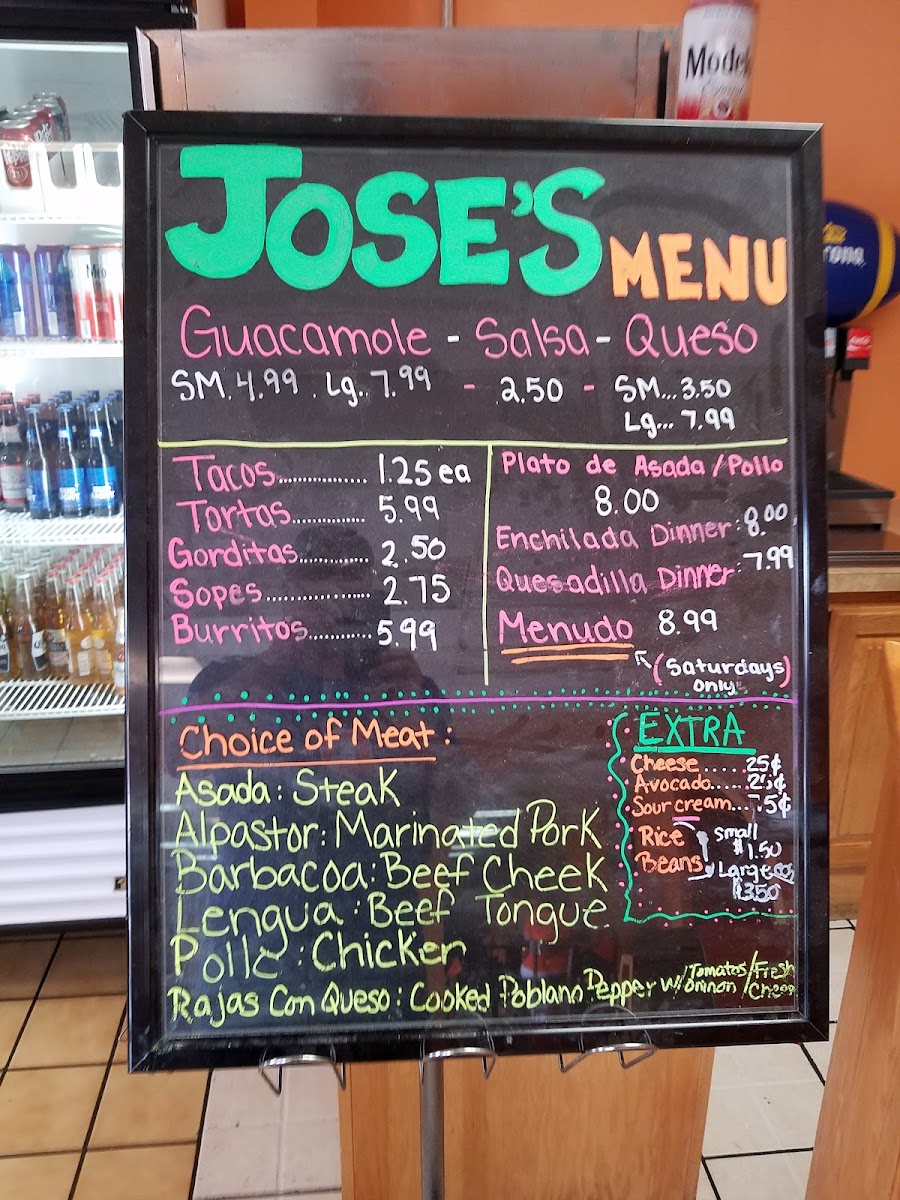 Mode
rona
JOSE'S MENU
Guacamole - Salsa - Queso
SM. 4.99 . Lg.. 7.99 - 2.50 - SM... 3.50
Lg... 7.99
Tacos................ 1.25 ea
Tortas.............. 5.99
Gorditas............ 2.50
Sopes................. 2.75
Burritos........... 5.99
Plato de Asada / Pollo
8.00
Enchilada Dinner: 8.00
Quesadilla Dinner: 7.99
Menudo 8.99
(Saturdays only)
Choice of Meat :
Asada : Steak
Alpastor: Marinated Pork
Barbacoa: Beef Cheek
Lengua : Beef Tongue
Pollo : Chicken
Rajas Con Queso : Cooked Poblano Pepper w/ Tomatos / Fresh
EXTRA
Cheese..... 25¢
Avocado.....
Sour cream...
Rice Small $1.50
Beans Large $3.50